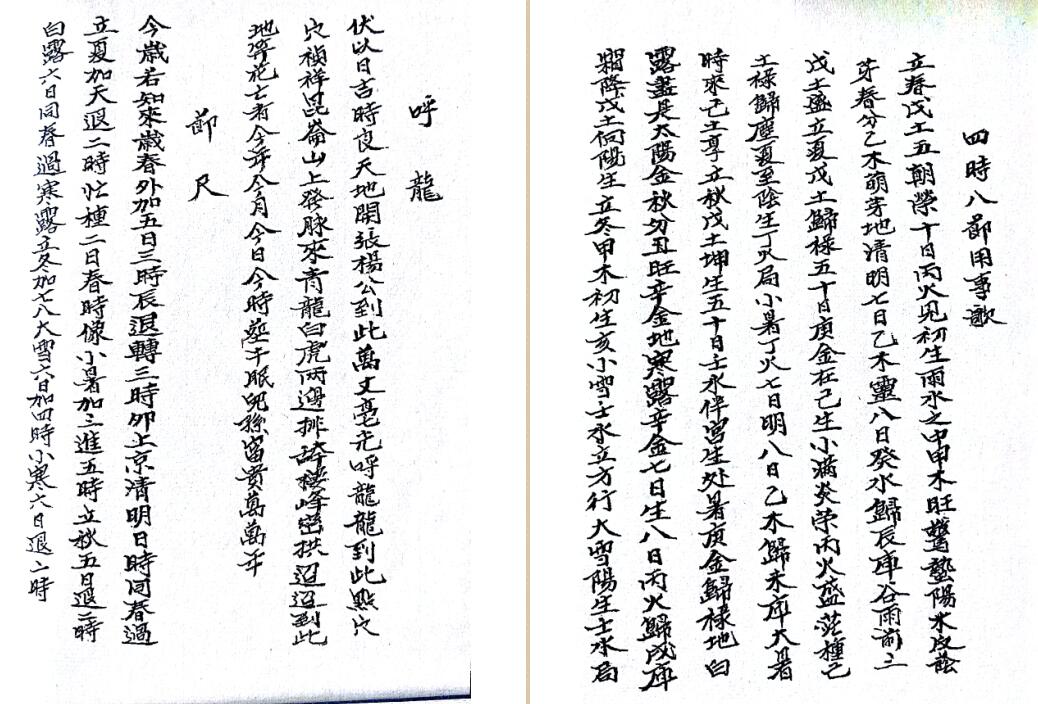 四時八節用事歌
立春戊土五朝榮十日丙火見初生雨水之中甲木旺驚蟄陽木皮
芽春分乙木萌芽地清明七日乙木靈八日癸水歸辰庫谷雨前三
戊土盛立夏戊土歸祿五十日庚金在己生小滿炎榮丙火盛茫種己
土祿歸塵夏至陰生丁火局小暑丁火七日明八日乙木歸未庫大暑
時來己土享立秋戊土坤生五十日壬水伴宮生处暑庚金歸祿地白
露盡是太陽金秋分丑旺辛金地寒露辛金七日生八日丙火歸戍庫
霜降戊土向陽生立冬甲木初生亥小雪士水立方行大雪陽生士水局
呼龍
伏以日吉時良天地開張楊公到此萬丈毫光呼龍龍到此點穴
穴禎祥昆崙山上發脉來青龍白虎兩邊排峰密拱迢迢到此
地亡者今年今月今日今時塟千眠兒孫富貴萬萬年
節尺
今歲若知來歲春外加五日三時辰退轉三時卯上京清明日時同春過
立夏加天退二時忙種二日春時像小暑加三進五時立秋五日退二時
白露六日同春過寒露立冬加七八大雪六日加四時小寒六日退二時